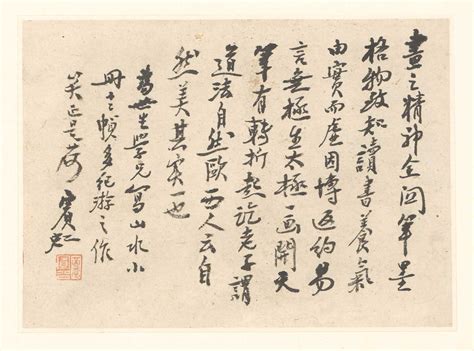 畫之精神全關筆墨
格物致知讀書養氣
由實而虛因博返約易
言無極生太極一畫開天
筆有轉折老子謂
道法自然歐西人云自
然美其實一也
學兄寫山水小
冊幀多紀游之作
笑正是荷 賓虹